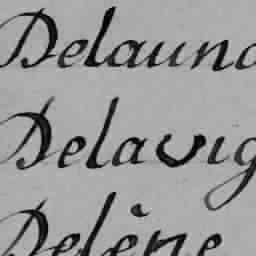 Delauna
Delavig
Delène